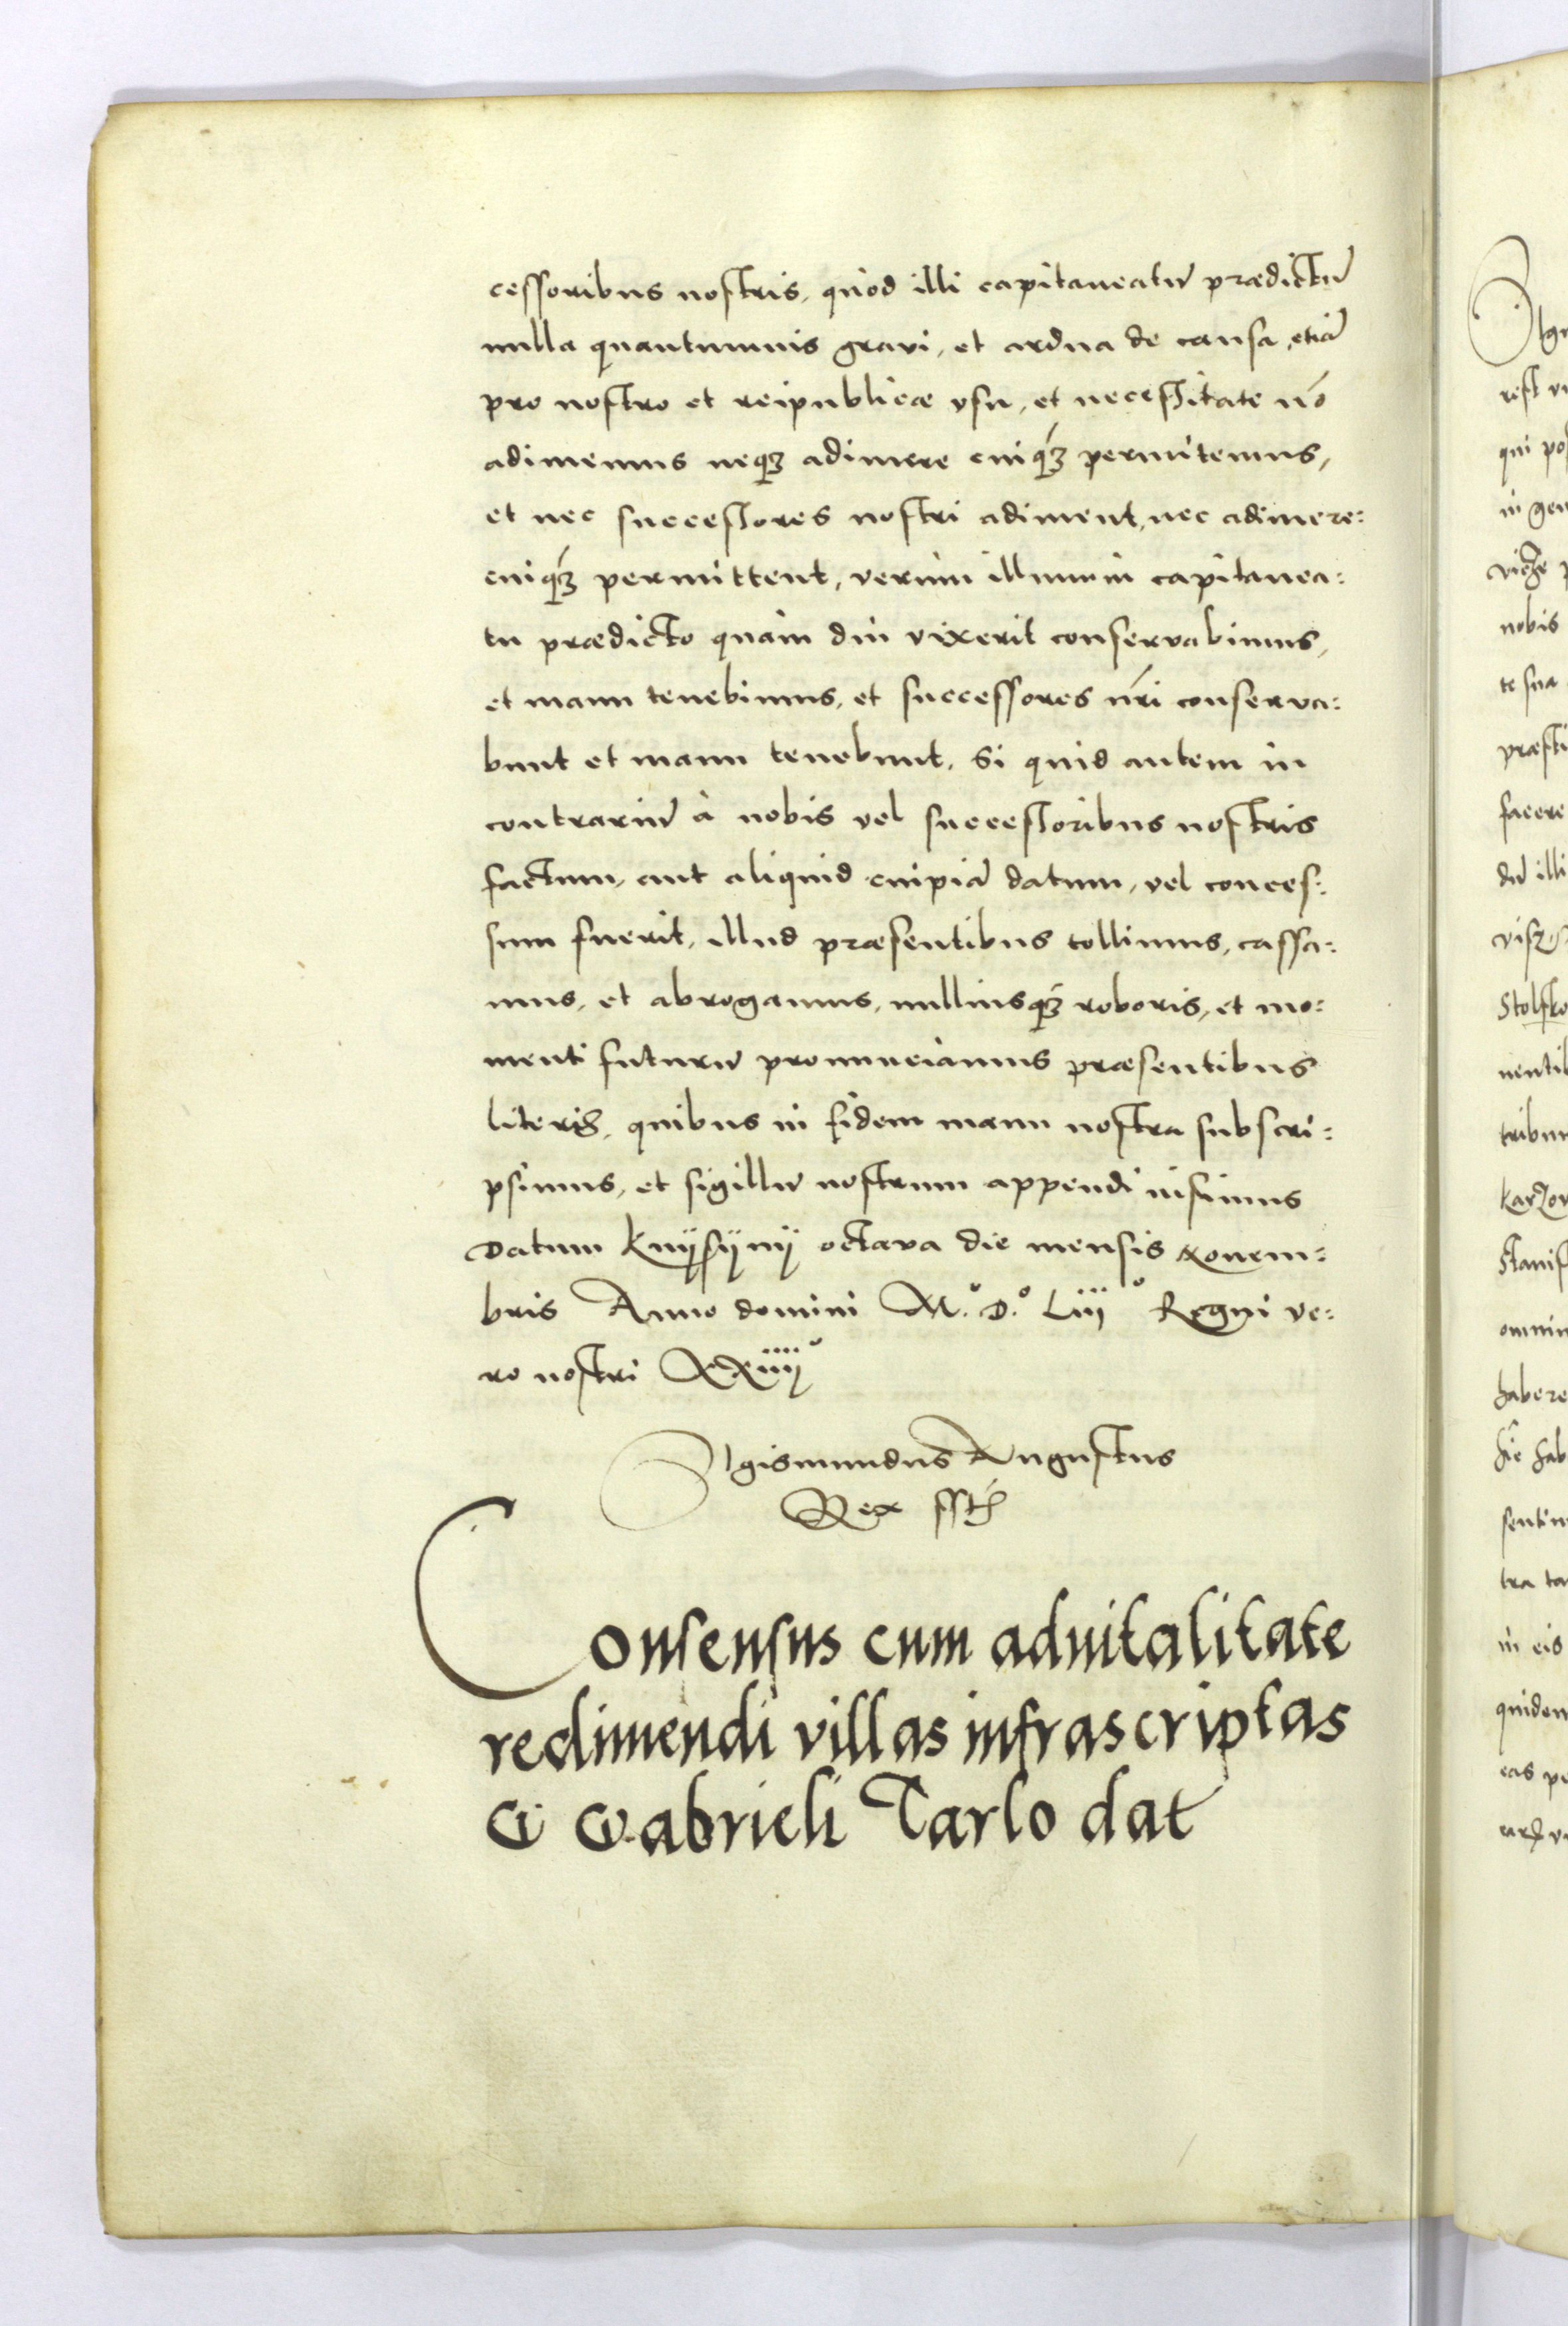 cessoribus nostris, quod illi capitaneatū prædictū
nulla quantumuis gravi, et ardua de causa, etiā
pro nostro et reipublicæ vsu, et necessitate nō
adimemus neqʒ adimere cuiqʒ́ permitemus,
et nec successores nostri adiment, nec adimere:
cuiqʒ́ permittent, verùm illum in capitanea:
tu prædicto quàm diu vixerit conservabimus,
et manu tenebimus, et successores nr̃i conserva:
bunt et manu tenebunt. Si quid autem in
contrariū à nobis vel successoribus nostris
factum, aut aliquid cuipiā datum, vel conces:
sum fuerit, illud præsentibus tollimus, cassa:
mus, et abrogamus, nulliusqʒ́ roboris, et mo:
menti futurū pronunciamus præsentibus
literis, quibus in fidem manu nostra subscri:
psimus, et sigillū nostrum appendi iussimus
Datum Knÿsÿnÿ octava die mensis Novem:
bris Anno domini M.º D.º Liijº Regni ve:
ro nostri XXiiijº
Sigismundus Augustus
Rex sst
Consensus cum aduitalitate
redimendi villas infrascriptas
G Gabrieli Tarlo dat
Sigi
qui
in gen
nobis
te sua
præsti
facere
dū illi
Stolsko
nentib
tribun
Stanis
omnin
habere
sentim
tra ta
in eis
quidem
eas pe